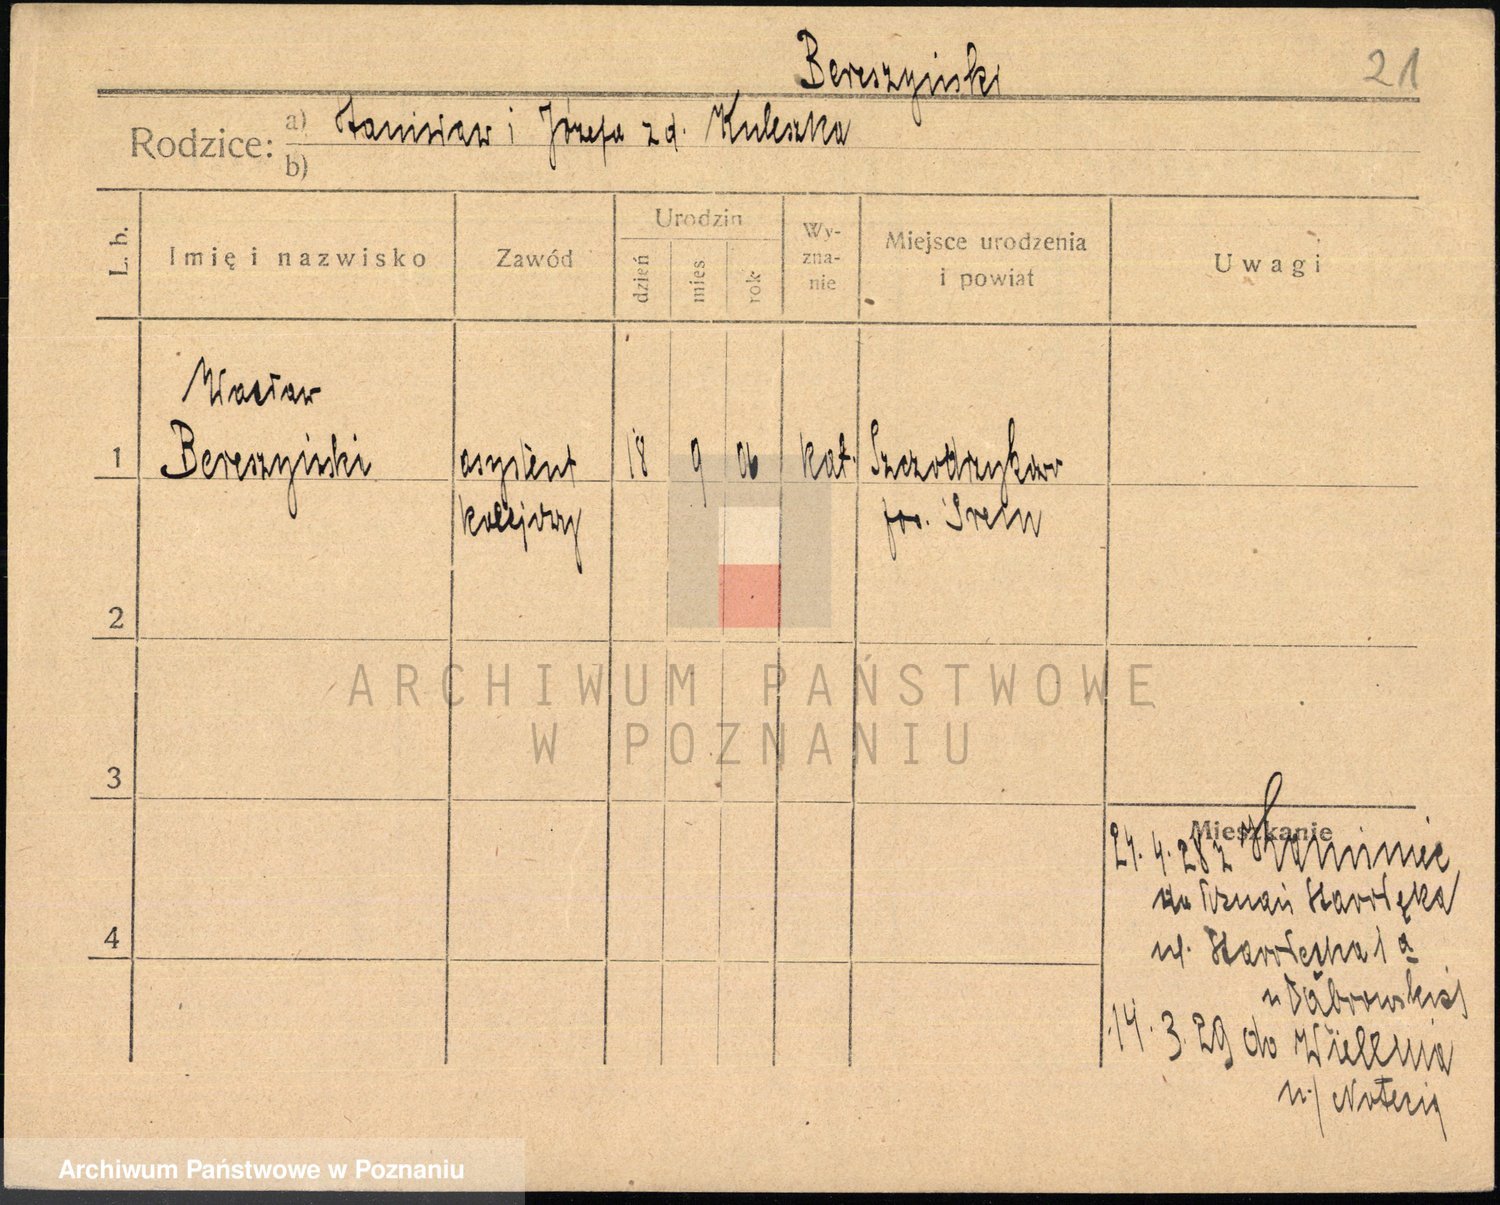 Bereszyński
21
Rodzice: a) Stanisław i Józefa z d. Kuleszka
b)
L. b. Imię i nazwisko Zawód Urodzin dzień mies rok Wy-zna-nie Miejsce urodzenia i powiat Uwagi
Wacław
1 Bereszyński asystent 18 9 06 kat. Szczodrzykowo
kolejowy pow. Śrem
2
ARCHIWUM PAŃSTWOWE
W POZNANIU
3
Mieszkanie
4. 28 z
do Poznań Starołęka
ul. Starołęcka 1 a
4
u Dąbrowskiej
14. 3. 29 do Wielenia
n/ Notecią
Archiwum Państwowe w Poznaniu